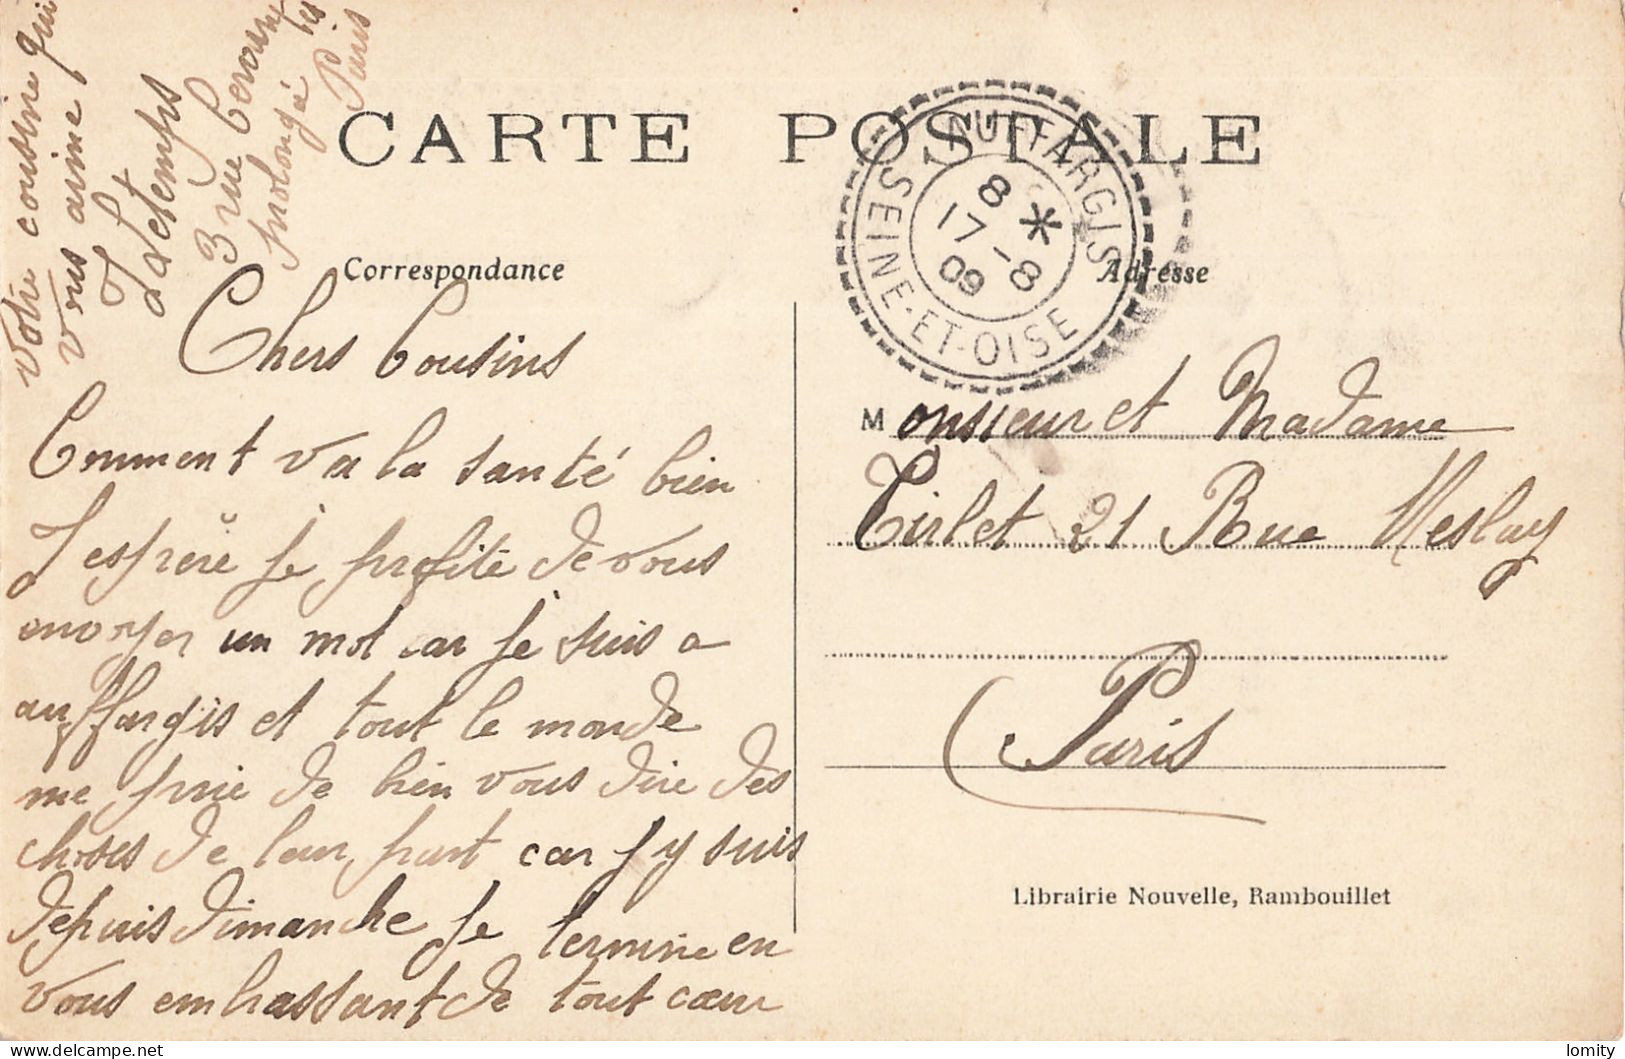 CARTE POSTALE
Correspondance
Adresse
AUFFARGIS
SEINE-ET-OISE
8 *
17 - 8
09
Chers Cousins
Comment va la santé bien
J espère je profite de vous
envoyer un mot car je suis a
auffargis et tout le monde
me prie de bien vous dire des
choses de leur part car j y suis
depuis dimanche je termine en
vous embrassant de tout cœur
votre cousine qui
vous aime
3 rue
prolongé
Paris
Monsieur et Madame
Tirlet 21 Rue Meslay
Paris
Librairie Nouvelle, Rambouillet
delcampe.net
lomity